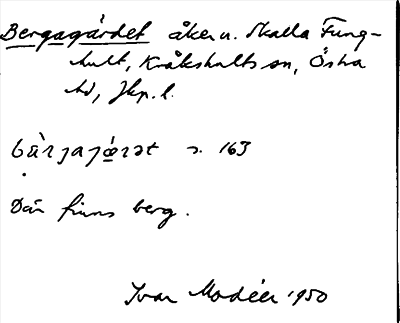 Bergagärdet åker u. Skalla Fung-
hult, Kråkshults sn, Östra
hd, Jkp. l.
bä̀rjajǽrət s. 163
Där finns berg.
Ivar Modéer 1950